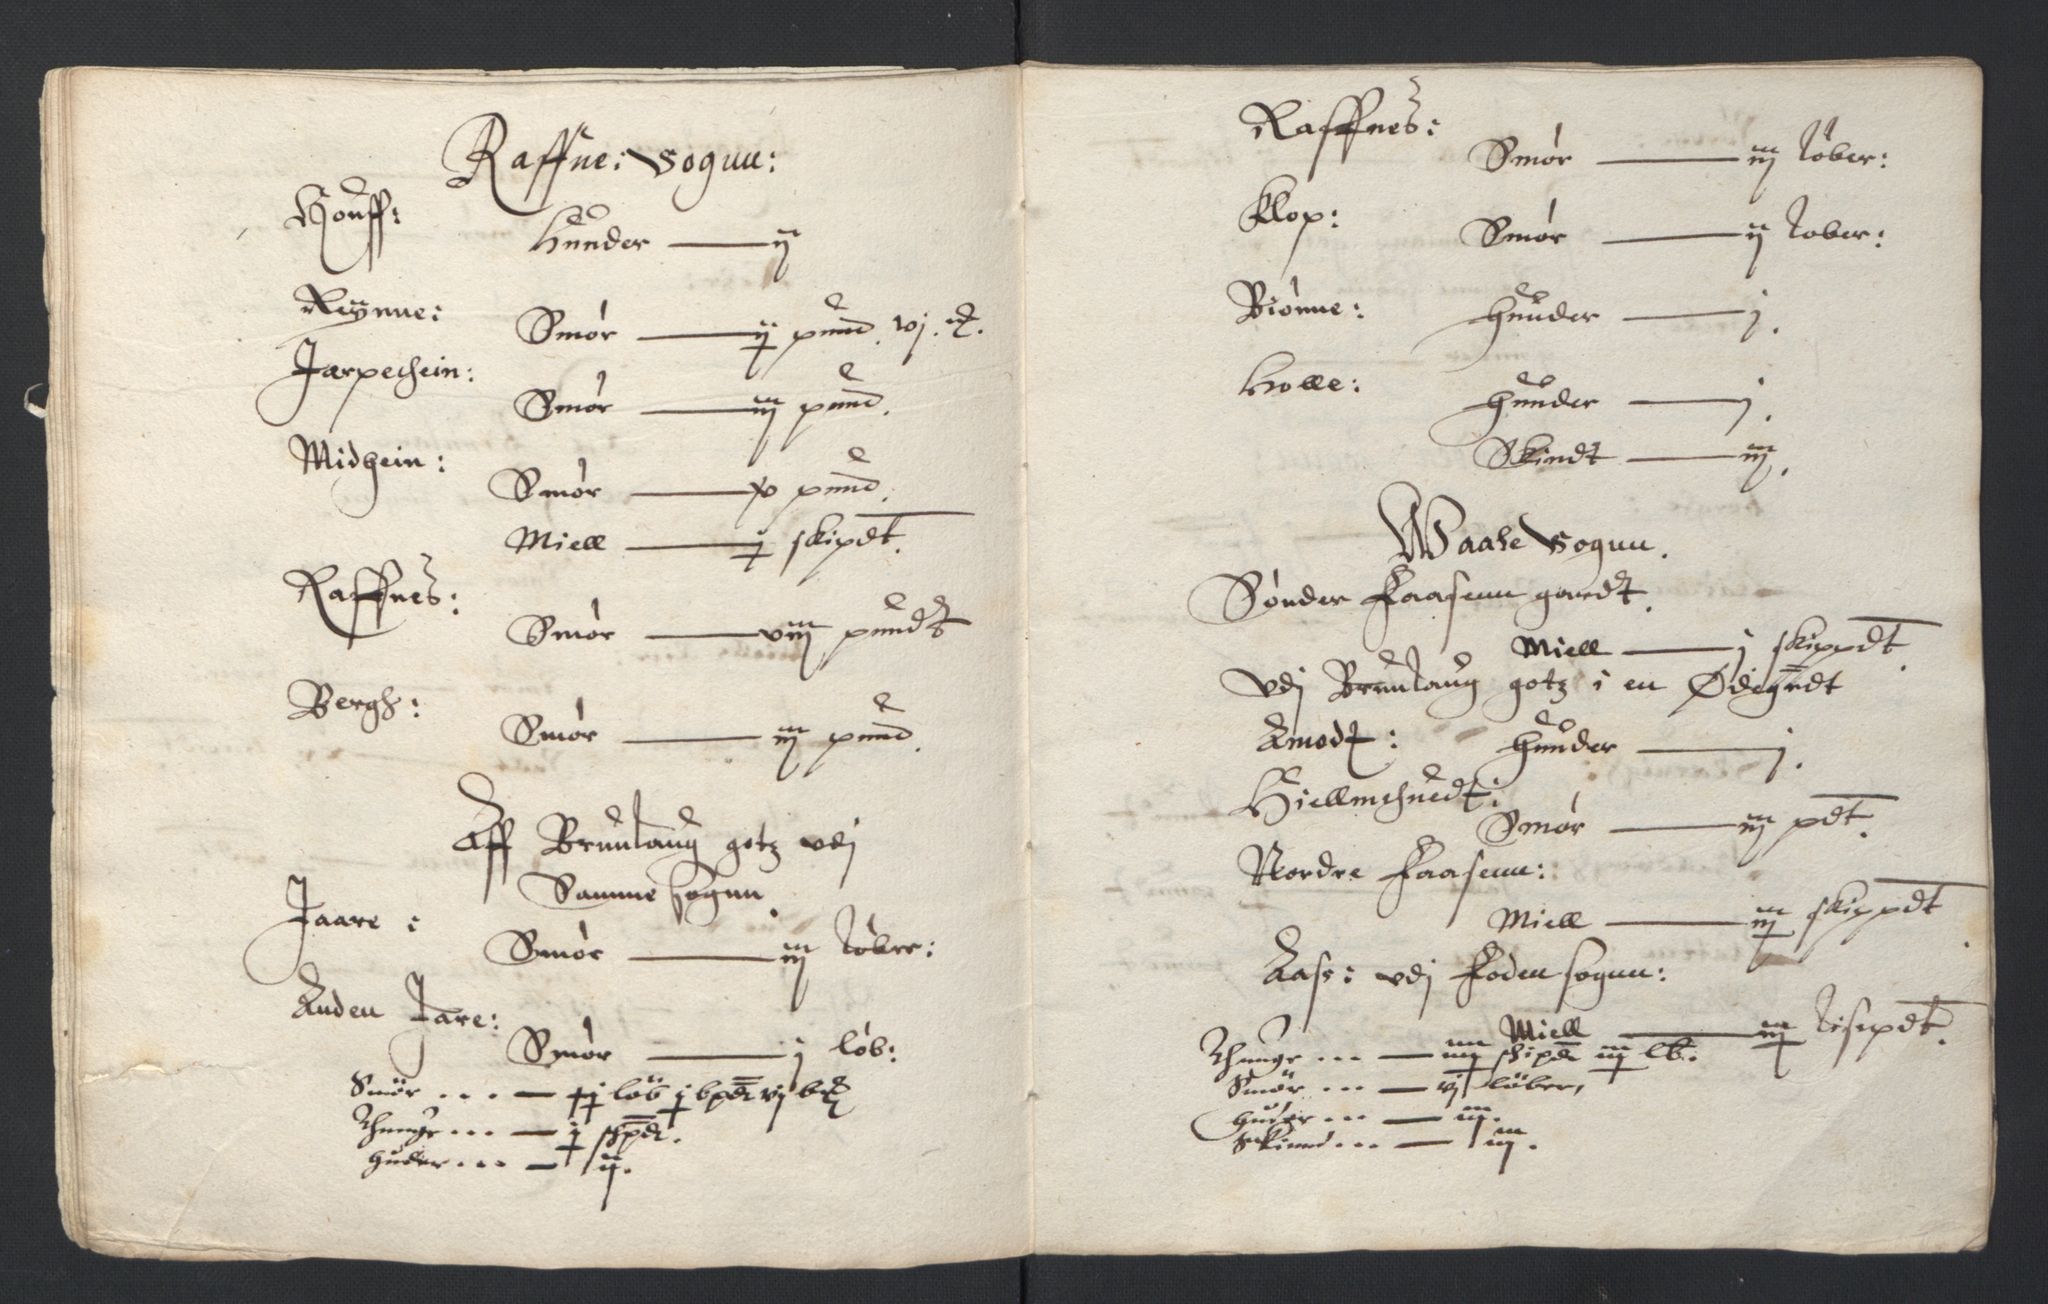 Raffne: Sognn:
Houff:
Hunder — ij
Reynne:
Smør — ij pund. vj. ℔.
Jarpehein:
Smør — iij pund.
Midhein:
Smør — x pund.
Miell — j skipdt.
Raffnes:
Smør — viij pundt
Bergh:
Smør — iij pund.
Aff Brunlaug gotz vdj
Samme sognn.
Jaare:
Smør — iij løber:
Anden Jare:
Smør — j løb:
Smör ... — xj löb j bpd vj
Thunge ... — j shpd.
huder ... — ij.
Raffnes:
Smør — iij løber:
Klop:
Smør — ij løber:
Biønne:
Hunder — j.
Holle:
Hunder — j.
Skindt — iij.
Waale Sognn.
Sønder Faasenn gardt.
Miell — j skippdt.
Vdj Brunlaug gotz i en Ødegrdt
Amodt:
Hunder — j.
Hiellmsnedt:
Smør — iij pdt.
Nordre Faasenn:
Miell — iij skippdt.
Aase: vdj Foden sognn:
Miell — iij Lisepdt.
Thunge ... — iiij shipd iij lb.
Smör ... — vj löber,
huder ... — iij.
Skinnd ... — iij.